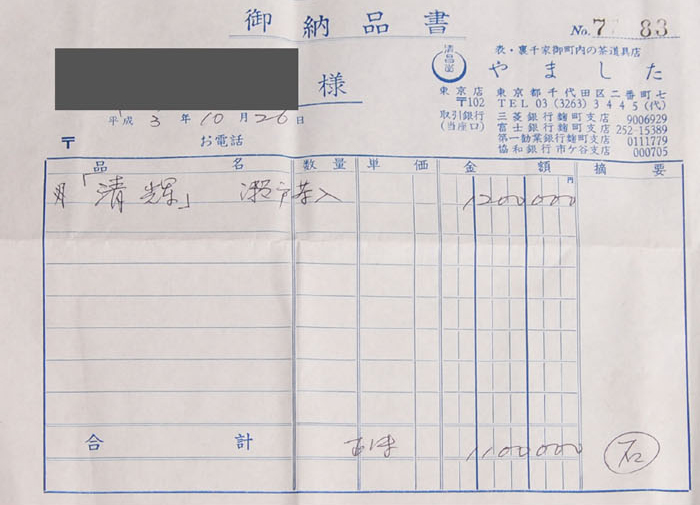 御納品書
No. 7 83
清昌堂
表・裏千家御町内の茶道具店
やました
様
東京店 東京都千代田区二番町七
〒102 TEL 03 (3263) 3445 (代)
取引銀行 三菱銀行麹町支店 9006929
(当座口) 富士銀行麹町支店 252-15389
第一勧業銀行麹町支店 0111779
協和銀行市ケ谷支店 000705
平成 3 年 10 月 26 日
〒 お電話
品名 数量 単価 金額 摘要
円
「清輝」 瀬戸茶入 1200000
合計 1100000 石